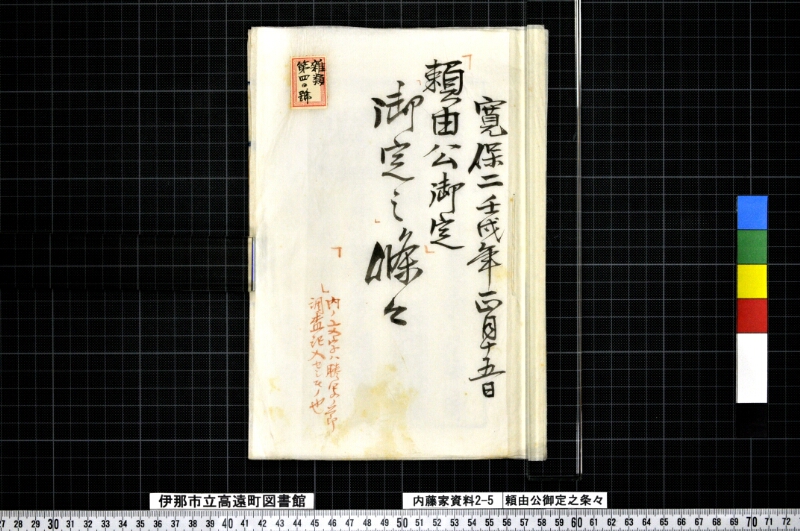 寛保二壬戌年正月十五日
頼由公御定
御定之條々
雑類
第四ノ号
「」内ノ文字ハ謄写ノ節
調査記入セシモノ也
伊那市立高遠町図書館
内藤家資料2-5 頼由公御定之条々
27 28 29 30 31 32 33 34 35 36 37 38 39 40 41 42 43 44 45 46 47 48 49 50 51 52 53 54 55 56 57 58 59 60 61 62 63 64 65 66 67 68 69 70 71 72